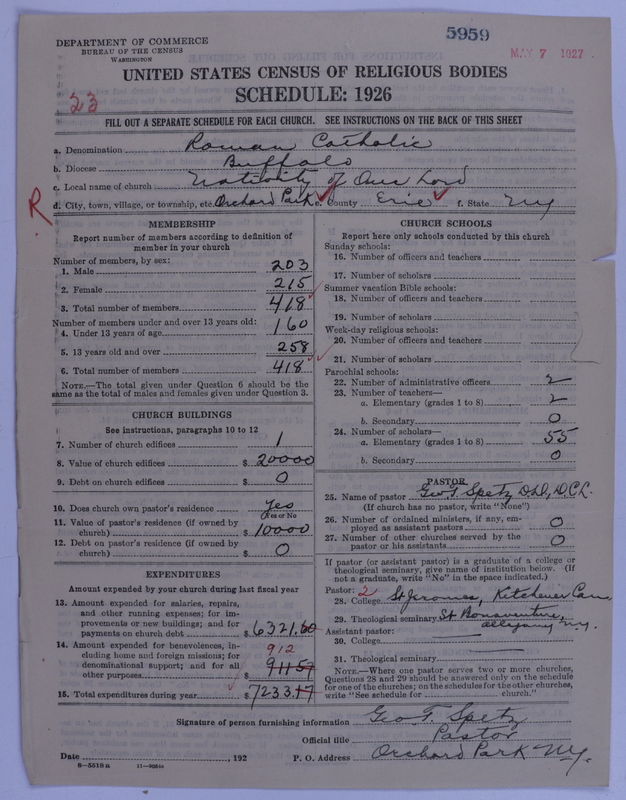 5959
MAY 7 1927
DEPARTMENT OF COMMERCE
BUREAU OF THE CENSUS
WASHINGTON
UNITED STATES CENSUS OF RELIGIOUS BODIES
SCHEDULE: 1926
23
FILL OUT A SEPARATE SCHEDULE FOR EACH CHURCH. SEE INSTRUCTIONS ON THE BACK OF THIS SHEET
a. Denomination Roman Catholic
b. Diocese Buffalo
c. Local name of church Nativity of Our Lord
R
d. City, town, village, or township, etc. Orchard Park e. County Erie f. State NY
MEMBERSHIP
Report number of members according to definition of
member in your church
Number of members, by sex:
1. Male 203
2. Female 215
3. Total number of members 418
Number of members under and over 13 years old:
4. Under 13 years of age 160
5. 13 years old and over 258
6. Total number of members 418
NOTE.—The total given under Question 6 should be the
same as the total of males and females given under Question 3.
CHURCH BUILDINGS
See instructions, paragraphs 10 to 12
7. Number of church edifices 1
8. Value of church edifices $ 20000
9. Debt on church edifices $ 0
10. Does church own pastor's residence Yes
Yes or No
11. Value of pastor's residence (if owned by
church) $ 10000
12. Debt on pastor's residence (if owned by
church) $ 0
EXPENDITURES
Amount expended by church during last fiscal year
13. Amount expended for salaries, repairs,
and other running expenses; for im-
provements or new buildings; and for
payments on church debt $ 6321.60
14. Amount expended for benevolences, in-
cluding home and foreign missions; for
denominational support; and for all
other purposes $ 912
91157
15. Total expenditures during year $ 7233.17
CHURCH SCHOOLS
Report here only schools conducted by this church
Sunday schools:
16. Number of officers and teachers
17. Number of scholars
Summer vacation Bible schools:
18. Number of officers and teachers
19. Number of scholars
Week-day religious schools:
20. Number of officers and teachers
21. Number of scholars
Parochial schools:
22. Number of administrative officers 2
23. Number of teachers—
a. Elementary (grades 1 to 8) 2
b. Secondary 0
24. Number of scholars—
a. Elementary (grades 1 to 8) 55
b. Secondary 0
PASTOR
25. Name of pastor Geo T. Spetz, D.D., D.C.L.
(If church has no pastor, write "None")
26. Number of ordained ministers, if any, em-
ployed as assistant pastors 0
27. Number of other churches served by the
pastor or his assistants 0
If pastor (or assistant pastor) is a graduate of a college or
theological seminary, give name of institution below. (If
not a graduate, write "No" in the space indicated.)
Pastor: 2
28. College St Jeromes, Kitchener Can
29. Theological seminary St Bonaventure,
Allegany N.Y.
Assistant pastor:
30. College
31. Theological seminary
NOTE.—Where one pastor serves two or more churches,
Questions 28 and 29 should be answered only on the schedule
for one of the churches; on the schedules for the other churches,
write "See schedule for church."
Signature of person furnishing information Geo T. Spetz
Official title Pastor
Date , 192 P. O. Address Orchard Park N.Y.
8—5518 a